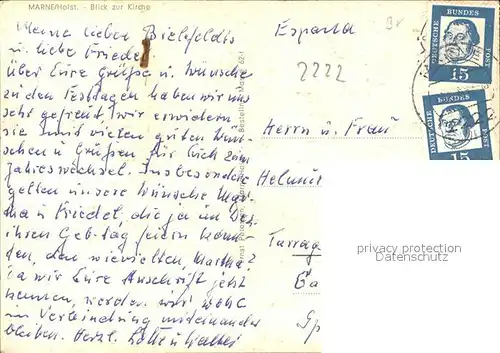 MARNE/Holst. - Blick zur Kirche
Meine lieben Bielefeldts
u. liebe Friedel
über Eure Grüße u. Wünsche
zu den Festtagen haben wir uns
sehr gefreut wir erwidern
sie mit vielen guten Wün-
schen u Grüßen für Euch zum
Jahreswechsel. Insbesondere
gelten unsere Wünsche Mar-
tha u Friedel, die ja im Dez.
ihren Geb.tag feiern
den, den wievielten, Martha?
Da wir Eure Anschrift jetzt
kennen, werden wir wohl
in Verbindung miteinander
bleiben. Herzl. Lotte u Walter
España
2222
Herrn u. Frau
Helmut
Tarrag
Ba
Sp
DEUTSCHE BUNDESPOST
15
DEUTSCHE BUNDESPOST
15
privacy protection
Datenschutz